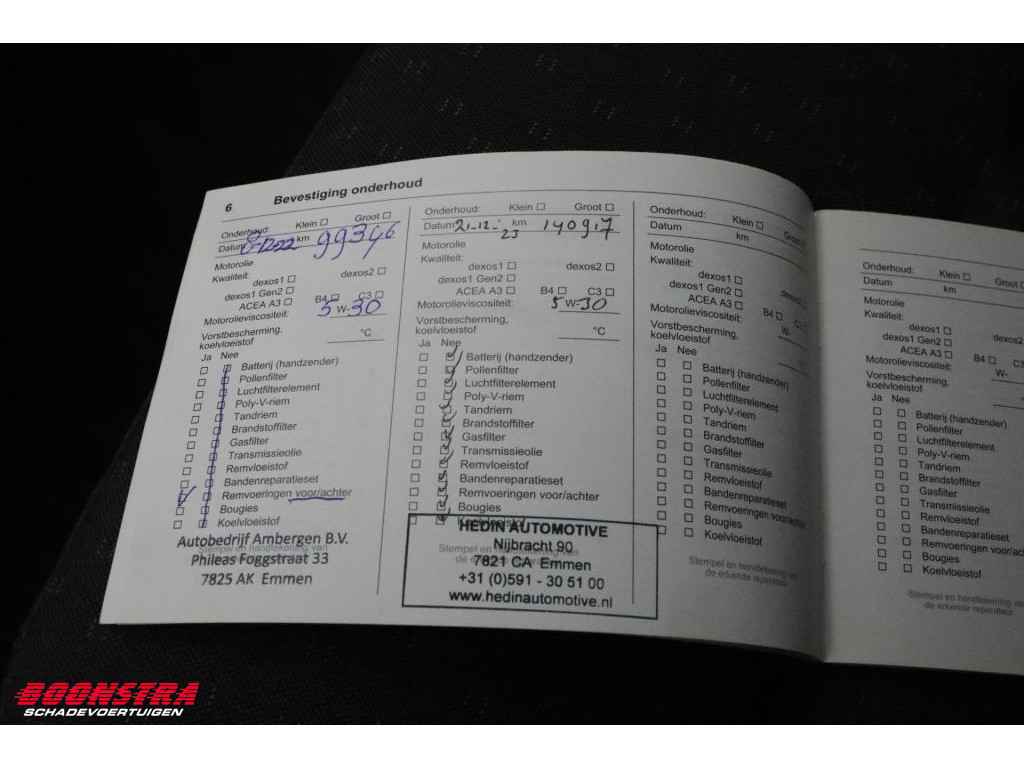 6 Bevestiging onderhoud
Onderhoud: Klein Groot
Datum 8-12-22 km 99346
Motorolie
Kwaliteit:
dexos1 dexos2
dexos1 Gen2
ACEA A3 B4 C3
Motorolieviscositeit: 5 W-30
Vorstbescherming,
koelvloeistof °C
Ja Nee
Batterij (handzender)
Pollenfilter
Luchtfilterelement
Poly-V-riem
Tandriem
Brandstoffilter
Gasfilter
Transmissieolie
Remvloeistof
Bandenreparatieset
Remvoeringen voor/achter
Bougies
Koelvloeistof
Autobedrijf Ambergen B.V.
Stempel en handtekening van
Phileas Foggstraat 33
7825 AK Emmen
Onderhoud: Klein Groot
Datum 21-12-23 km 140917
Motorolie
Kwaliteit:
dexos1 dexos2
dexos1 Gen2
ACEA A3 B4 C3
Motorolieviscositeit: 5 W-30
Vorstbescherming,
koelvloeistof °C
Ja Nee
Batterij (handzender)
Pollenfilter
Luchtfilterelement
Poly-V-riem
Tandriem
Brandstoffilter
Gasfilter
Transmissieolie
Remvloeistof
Bandenreparatieset
Remvoeringen voor/achter
Bougies
Koelvloeistof
HEDIN AUTOMOTIVE
Nijbracht 90
Stempel en handtekening van
7821 CA Emmen
de erkende reparateur
+31 (0)591 - 30 51 00
www.hedinautomotive.nl
Onderhoud: Klein Groot
Datum km
Motorolie
Kwaliteit:
dexos1 dexos2
dexos1 Gen2
ACEA A3 B4
Motorolieviscositeit: W-
Vorstbescherming,
koelvloeistof °C
Ja Nee
Batterij (handzender)
Pollenfilter
Luchtfilterelement
Poly-V-riem
Tandriem
Brandstoffilter
Gasfilter
Transmissieolie
Remvloeistof
Bandenreparatieset
Remvoeringen voor/achter
Bougies
Koelvloeistof
Stempel en handtekening van
de erkende reparateur
Onderhoud: Klein
Datum km
Motorolie
Kwaliteit:
dexos1 dexos2
dexos1 Gen2
ACEA A3 B4
Motorolieviscositeit: W-
Vorstbescherming,
koelvloeistof
Ja Nee
Batterij (handzender)
Pollenfilter
Luchtfilterelement
Poly-V-riem
Tandriem
Brandstoffilter
Gasfilter
Transmissieolie
Remvloeistof
Bandenreparatieset
Remvoeringen voor/achter
Bougies
Koelvloeistof
Stempel en handtekening van
de erkende reparateur
BOONSTRA
SCHADEVOERTUIGEN